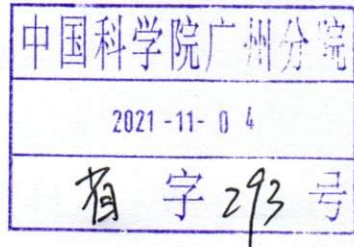 中国科学院广州分院
2021-11-04
省字293号